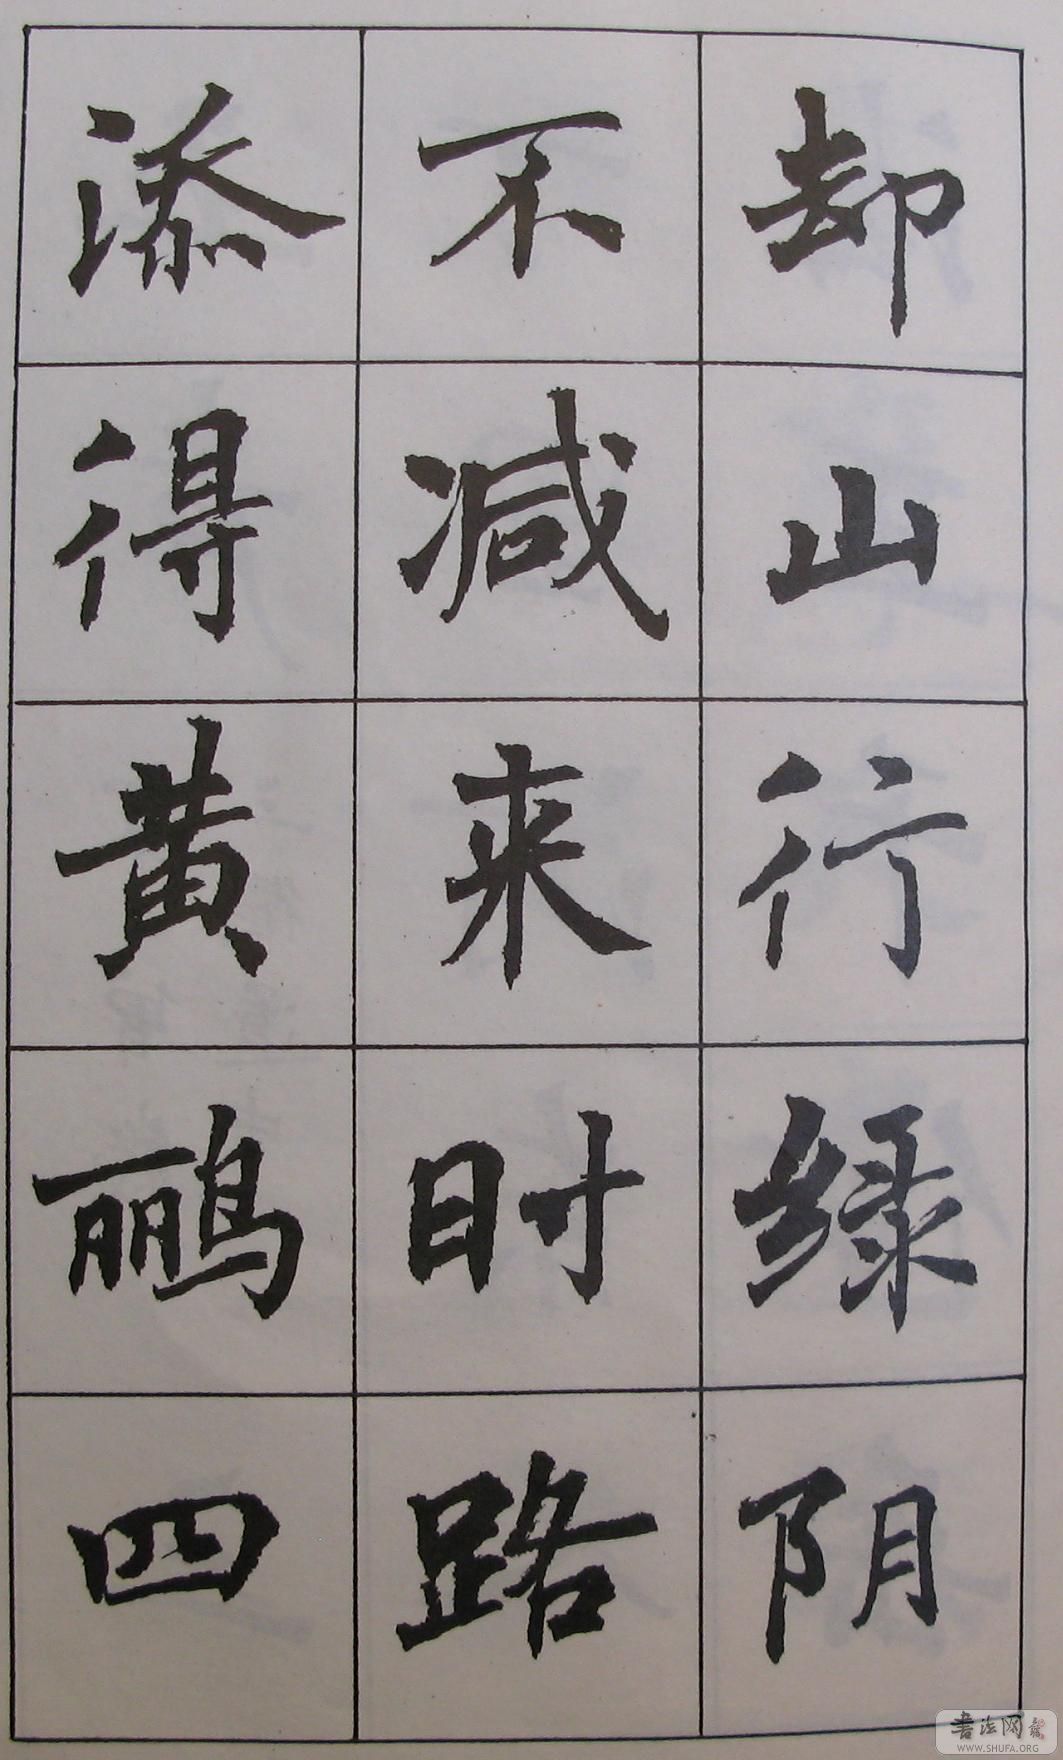 却山行绿阴
不减来时路
添得黄鹂四
书法网
WWW.SHUFA.ORG